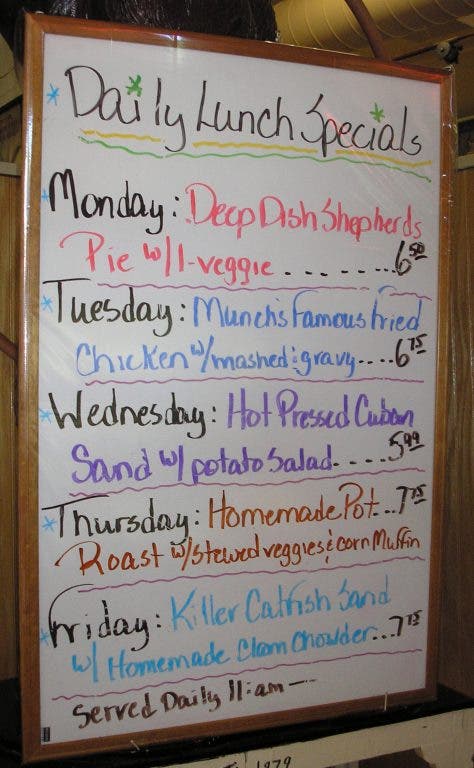 Daily Lunch Specials
Monday: Deep Dish Shepherds
Pie w/1-veggie.......6.50
Tuesday: Munch's Famous Fried
Chicken w/mashed & gravy....6.75
Wednesday: Hot Pressed Cuban
Sand w/ potato Salad.....5.99
Thursday: Homemade Pot...7.75
Roast w/stewed veggies & corn Muffin
Friday: Killer Catfish Sand
w/ Homemade Clam Chowder...7.75
Served Daily 11:am -